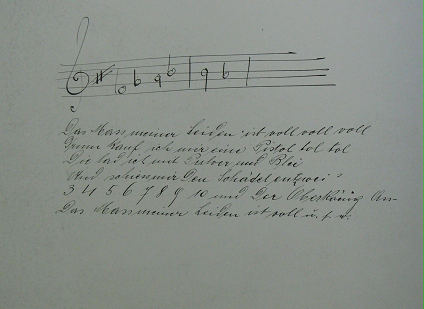 Das Mass meiner Leiden ist voll voll voll
Drum kauf ich mir eine Pistol tol tol
Die lad ich mit Pulver und Blei
Und schiess mir den Schädel entzwei
3 4 5 6 7 8 9 10 und Der
Das Mass meiner Leiden ist voll u. s. w.